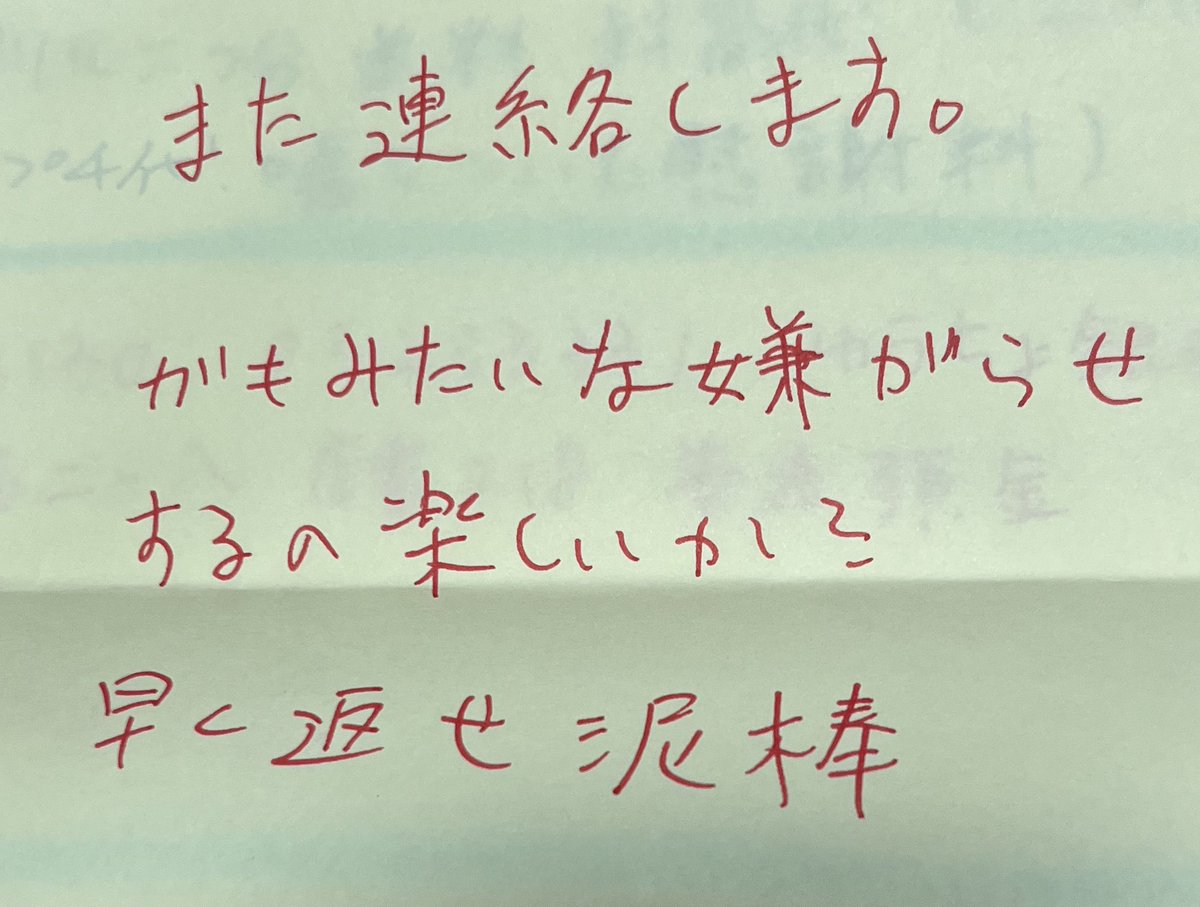 また連絡します。
がもみたいな嫌がらせ
するの楽しいかしら
早く返せ泥棒